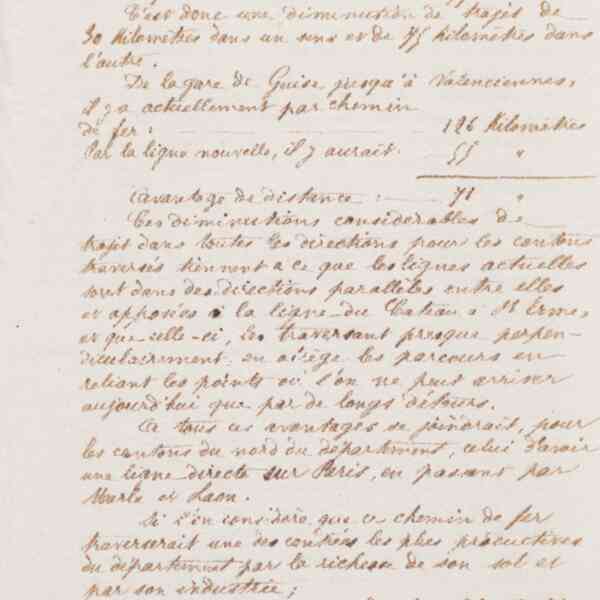 C'est donc une diminution de trajet de
30 Kilomètres dans un sens et de 75 Kilomètres dans
l'autre.
De la gare de Guise jusqu'à Valenciennes,
il y a actuellement par chemin
de fer : 126 Kilomètres
Par la ligne nouvelle, il y aurait. 55 "
Avantage de distance : 71 "
Ces diminutions considérables de
trajet dans toutes les directions pour les cantons
traversés tiennent à ce que les lignes actuelles
sont dans des directions parallèles entre elles
et opposées à la ligne du Cateau à St Erme,
et que celle-ci, les traversant presque perpen-
diculairement en abrège les parcours en
reliant les points où l'on ne peut arriver
aujourd'hui que par de longs détours.
A tous ces avantages se joindrait, pour
les cantons du nord du département, celui d'avoir
une ligne directe sur Paris, en passant par
Marle et Laon.
Si l'on considère que ce chemin de fer
traverserait une des contrées les plus productives
du département par la richesse de son sol et
par son industrie ;